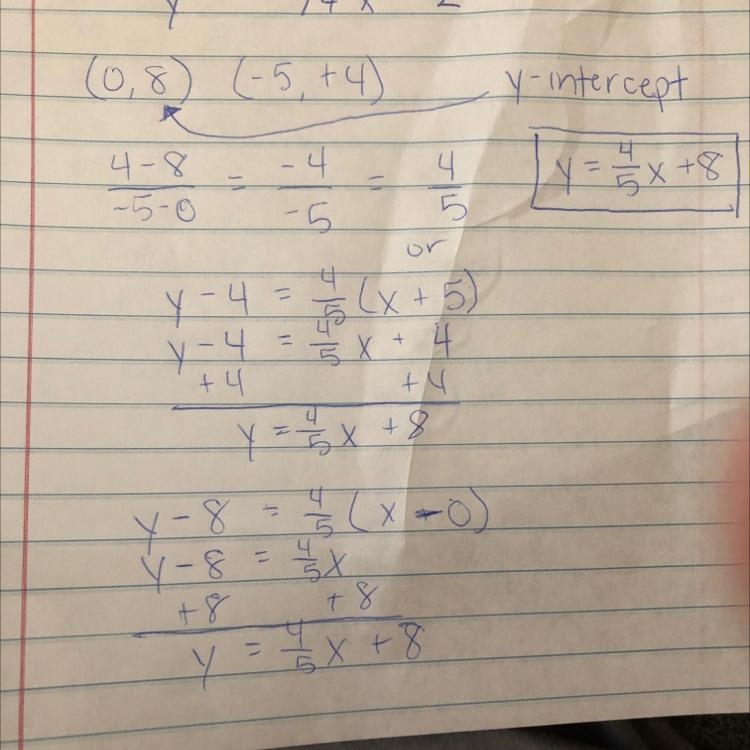 (0, 8) (-5, +4) y-intercept
4-8/-5-0 = -4/-5 = 4/5
y = 4/5 x + 8
or
y - 4 = 4/5 (x + 5)
y - 4 = 4/5 x + 4
+4 +4
y = 4/5 x + 8
y - 8 = 4/5 (x - 0)
y - 8 = 4/5 x
+8 +8
y = 4/5 x + 8